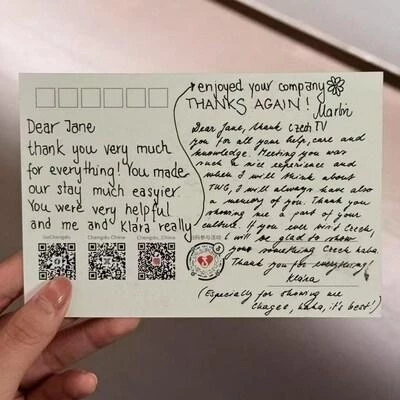 Dear Jane
thank you very much
for everything! You made
our stay much easyier.
You were very helpful
and me and Klára really
enjoyed your company
THANKS AGAIN!
Martin
Czech TV
Dear Jane, thank
you for all your help, care and
knowledge. Meeting you was
such a nice experience and
when I will think about
TWG, I will always have also
a memory of you. Thank you
showing me a part of your
culture. If you ever visit Czech,
I will be glad to show
you something Czech haha.
Thank you for everything!
Klára
(Especially for showing me
Chagee, haha, it's best!)
GoChengdu
Chengdu_China
Chengdu_China